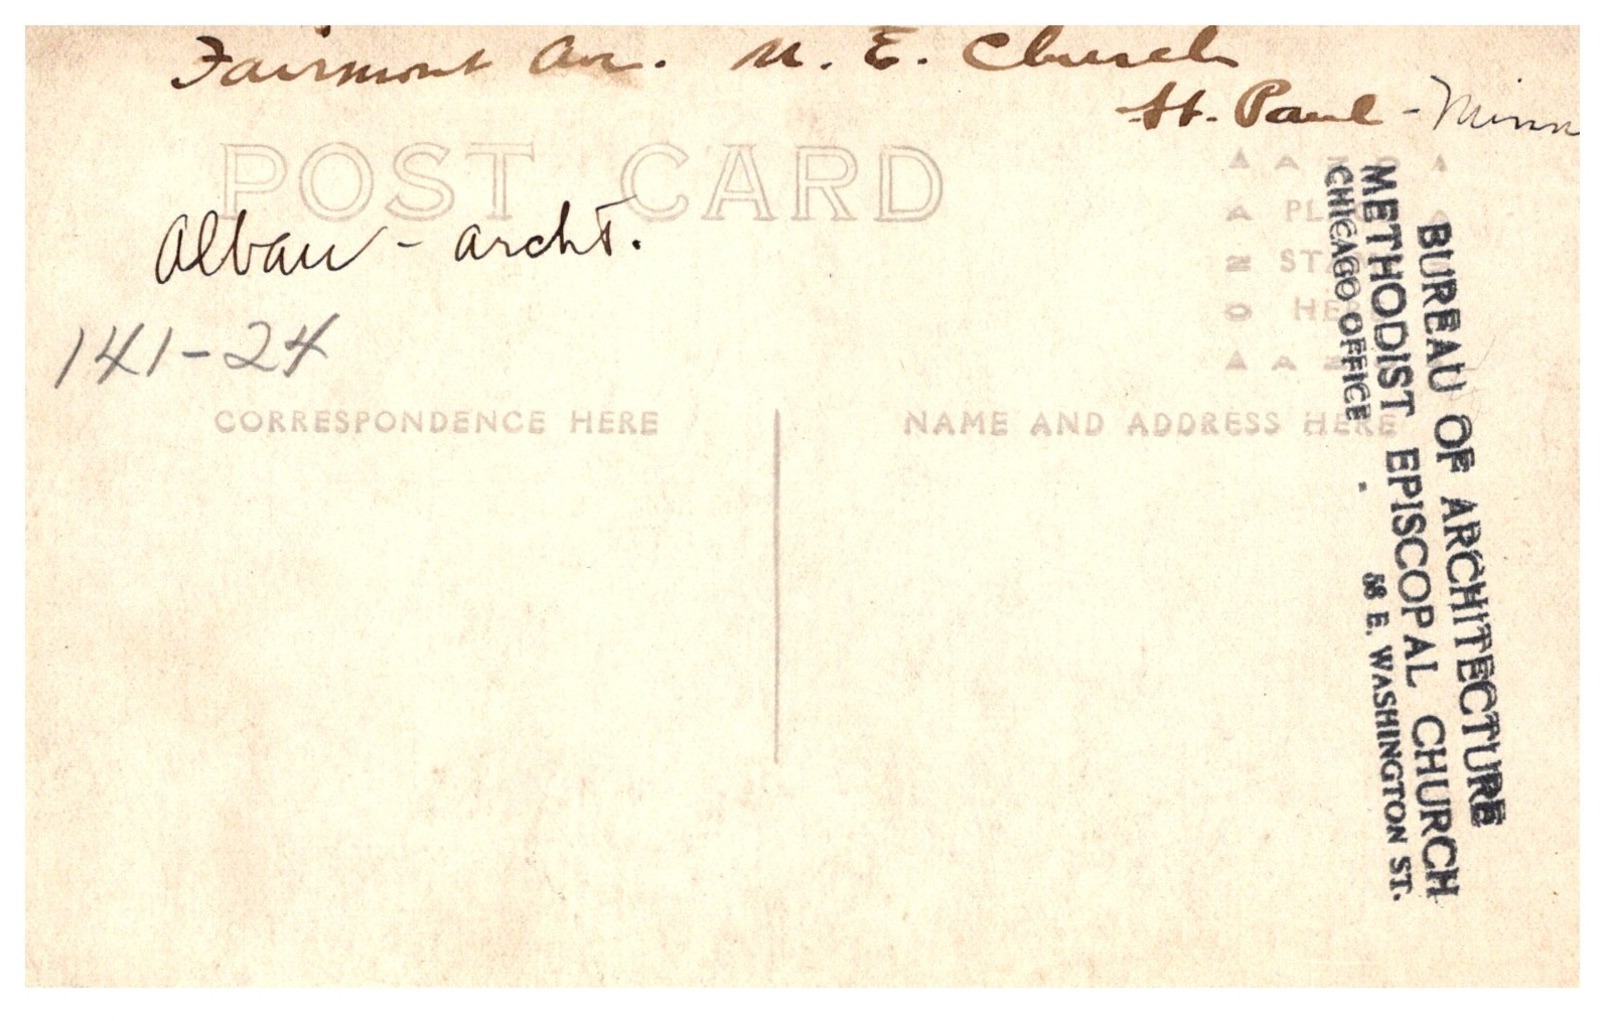 Fairmont Av. M. E. Church
St. Paul - Minn
POST CARD
Alban - archt.
141-24
CORRESPONDENCE HERE
NAME AND ADDRESS HERE
BUREAU OF ARCHITECTURE
METHODIST EPISCOPAL CHURCH
CHICAGO OFFICE . 58 E. WASHINGTON ST.